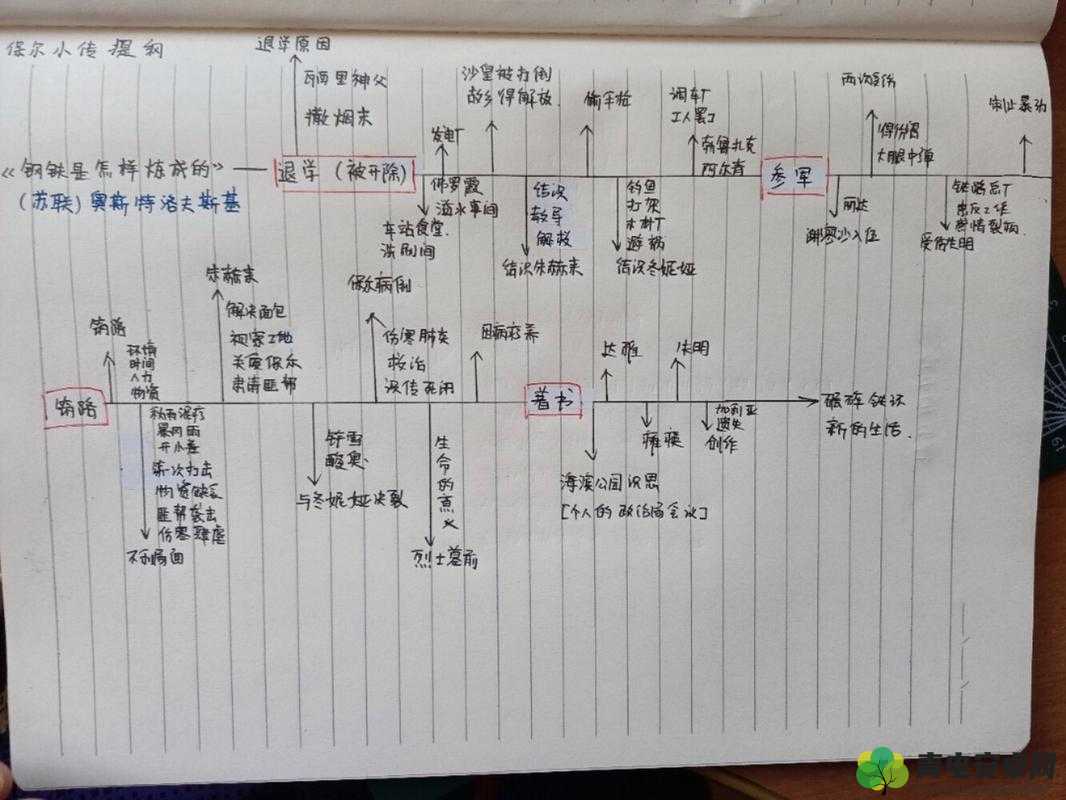 保尔小传提纲
退学原因
瓦西里神父
撒烟末
《钢铁是怎样炼成的》
(苏联)奥斯特洛夫斯基
退学(被开除)
发电厂
佛罗霞
溢水事间
车站食堂
洗刷间
沙皇被打倒
故乡得解放
结识
教导
解救
结识朱赫来
偷手枪
钓鱼
打架
木材厂
避祸
结识冬妮娅
调车厂
工人罢工
阿尔青
参军
两次负伤
得伤寒
大眼中弹
丽达
谢寥沙入伍
制止暴动
铁路总厂
受伤失明
筑路
筑路
环境
时间
人力
物资
秋雨泥泞
暴风雨
开小差
第一次打击
物资缺乏
匪帮袭击
伤寒肆虐
不利局面
朱赫来
解决面包
视察工地
关爱保尔
肃清匪帮
铲雪
酸臭
与冬妮娅决裂
保尔病倒
伤寒肺炎
救治
误传死闭
生命的意义
烈士墓前
因病疗养
著书
达雅
失明
海滨公园沉思
[个人的政治局会议]
瘫痪
加利亚
遗失
创作
砸碎铁环
新的生活.